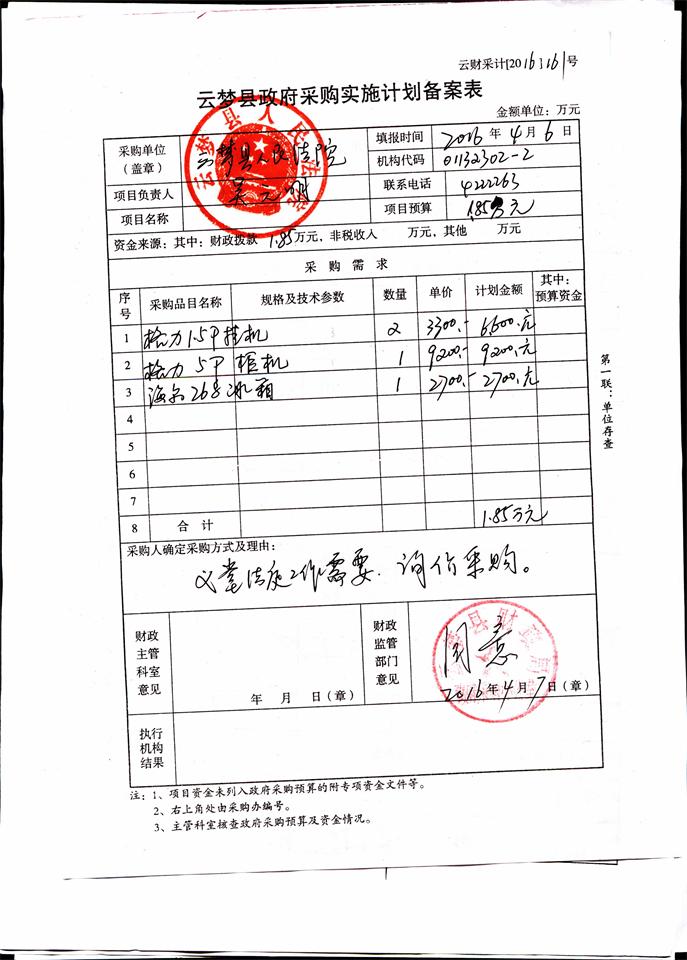 云财采计[2016]161号
云梦县政府采购实施计划备案表
金额单位：万元
采购单位（盖章） 云梦县人民法院 填报时间 2016年4月6日
机构代码 01132302-2
项目负责人 联系电话 4222263
项目名称 项目预算 1.85万元
资金来源：其中：财政拨款 1.85万元，非税收入 万元，其他 万元
采购需求
序号 采购品目名称 规格及技术参数 数量 单价 计划金额 其中：预算资金
1 格力1.5P挂机 2 3300.- 6600.元
2 格力5P柜机 1 9200.- 9200.元
3 海尔268冰箱 1 2700.- 2700.元
4
5
6
7
8 合计 1.85万元
采购人确定采购方式及理由：
义堂法庭工作需要.询价采购。
财政主管科室意见 年 月 日（章） 财政监管部门意见 同意 2016年4月7日（章）
执行机构结果
注：1、项目资金未列入政府采购预算的附专项资金文件等。
2、右上角处由采购办编号。
3、主管科室核查政府采购预算及资金情况。
第一联：单位存查